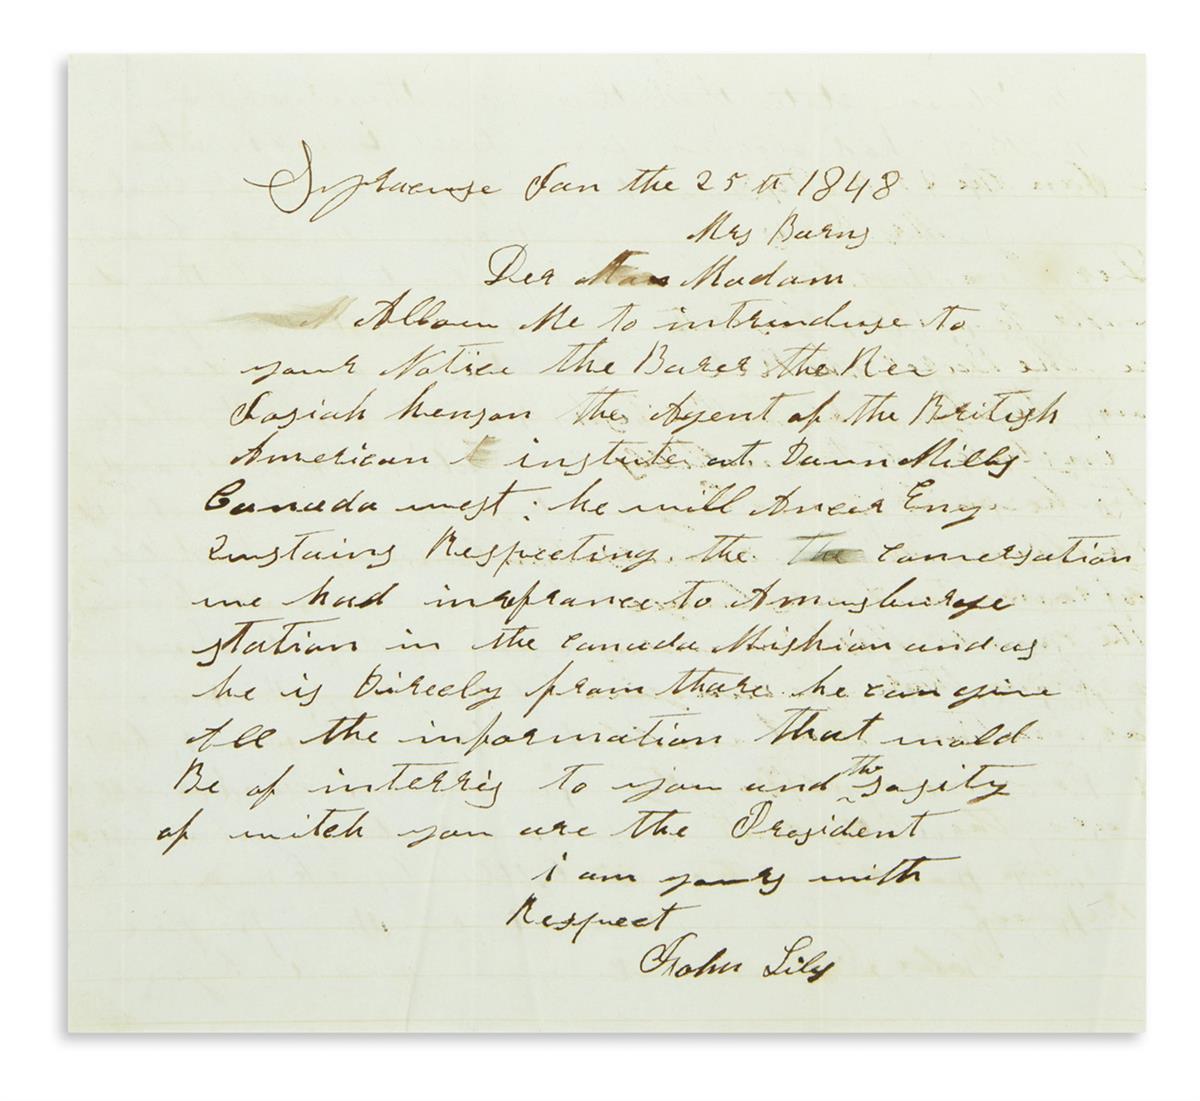 Syracuse Jan the 25th 1848
Mrs Barns
Der Madam
Allow Me to intrinduse to
your Notice the Barer the Rev
Josiah henson the Agent of the British
American institute at Dawn Mills
Canada west; he will Ancer Eny
Qustains Respecting the conversation
we had inrefrance to Amusburge
station in the canada Mishian and as
he is Direcly from thare he can give
All the information that wold
Be of interris to you and the sosity
of witch you are the President
i am yours with
Respect
John Lily